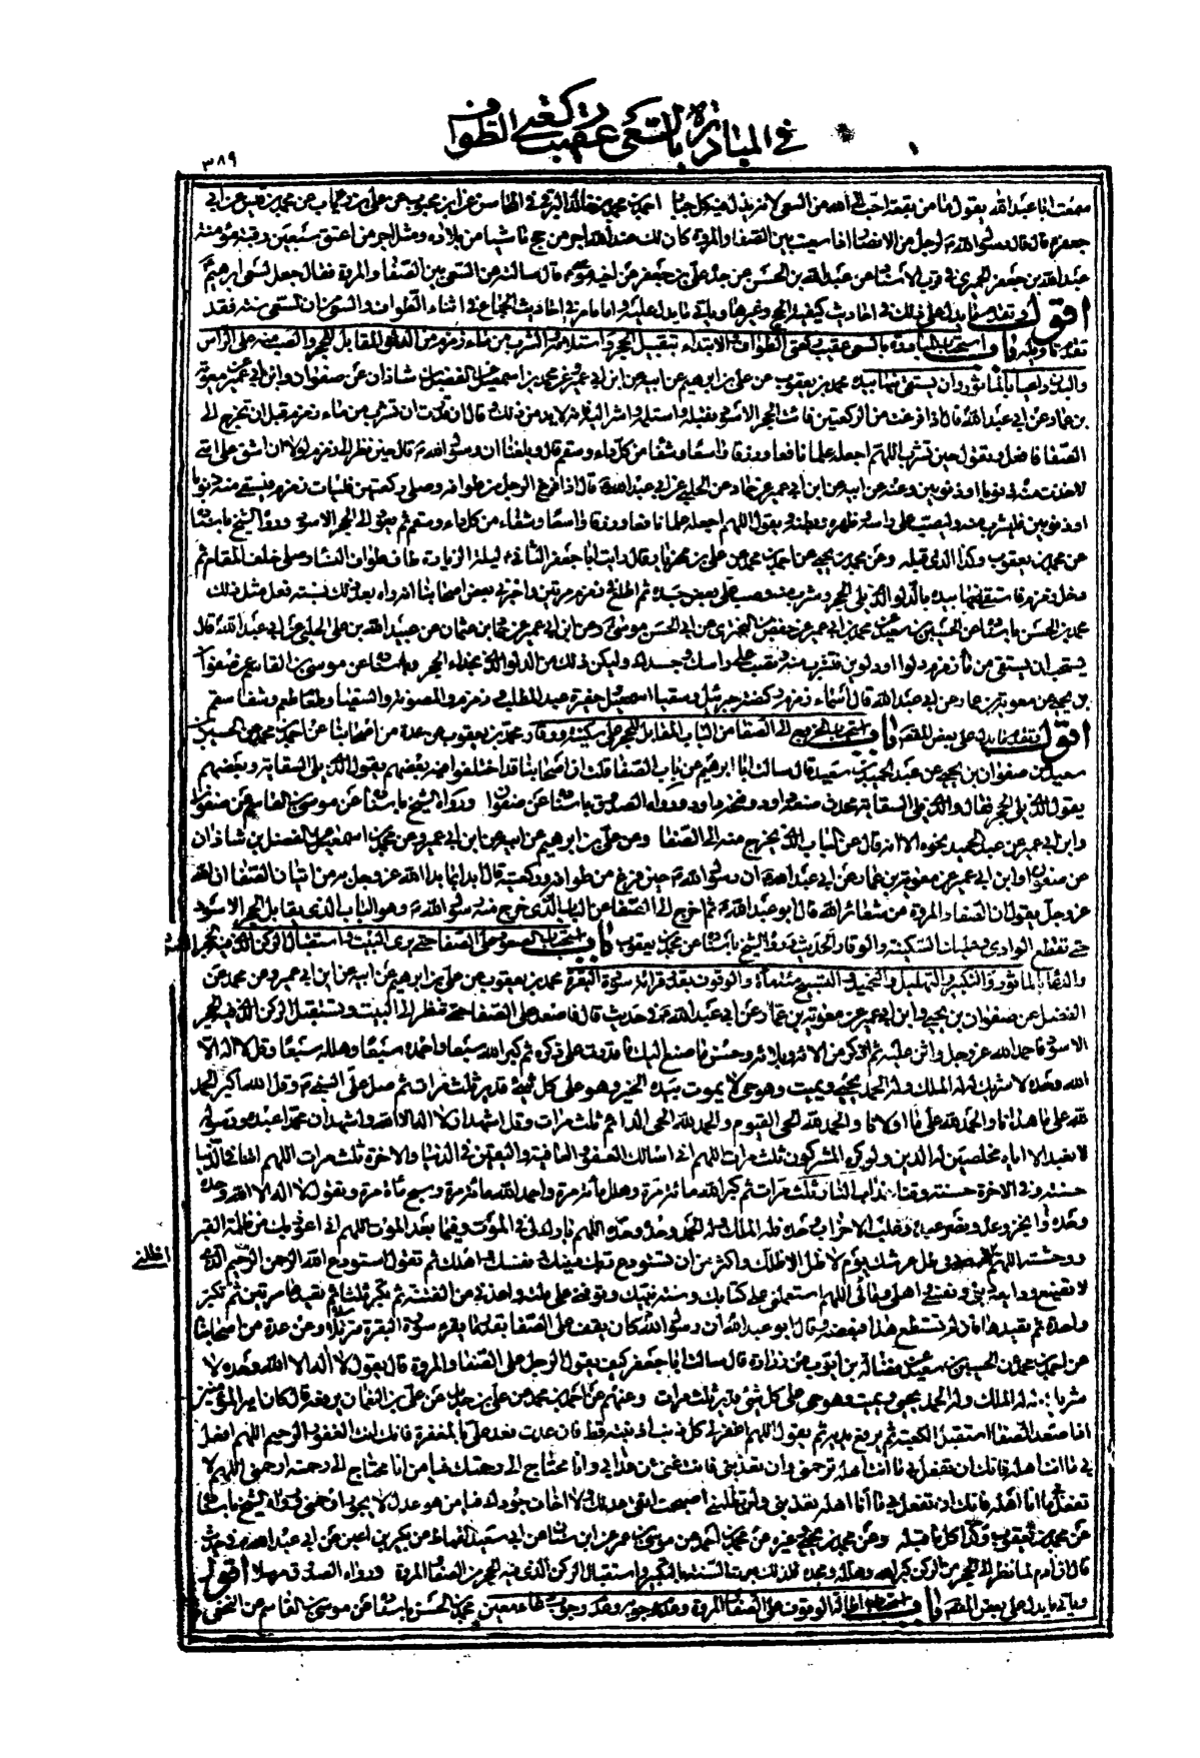 في المبادرة بالسعى عقيب ركعتي الطواف
٣٨٩
سمعت ابا عبد الله يقول ما من بقعة احب الى الله من السعى لانه يذل فيه كل جبار احمد بن محمد بن خالد البرقي في المحاسن عن ابن محبوب عن علي بن رئاب عن محمد بن قيس عن ابي
جعفر قال قال رسول الله لرجل من الانصار اذا سعيت بين الصفا والمروة كان لك عند الله اجر من حج ماشيا من بلاده ومثل اجر من اعتق سبعين رقبة مؤمنة
عبد الله بن جعفر الحميري في قرب الاسناد عن عبد الله بن الحسن عن جده علي بن جعفر عن اخيه موسى قال سالته عن السعى بين الصفا والمروة فقال جعل لسعى ابرهيم
اقول وتقدم ما يدل على ذلك في احاديث كيفية الحج وغيرها وياتي ما يدل عليه واما ما مر في احاديث الجماع في اثناء الطواف والسعى ان السعى سنة فقد
تقدم تاويله باب استحباب المبادرة بالسعى عقيب ركعتي الطواف والابتداء بتقبيل الحجر واستلامه والشرب من ماء زمزم من الدلو المقابل للحجر والصب منه على الراس
والبدن داعيا بالماثور وان يستقى منها بيده محمد بن يعقوب عن علي بن ابرهيم عن ابيه عن ابن ابي عمير وعن محمد بن اسمعيل عن الفضل بن شاذان عن صفوان وابن ابي عمير عن معوية
بن عمار عن ابي عبد الله قال اذا فرغت من الركعتين فائت الحجر الاسود فقبله واستلمه واشر اليه فانه لابد من ذلك وقال ان قدرت ان تشرب من ماء زمزم قبل ان تخرج الى
الصفا فافعل وتقول حين تشرب اللهم اجعله علما نافعا ورزقا واسعا وشفاء من كل داء وسقم قال وبلغنا ان رسول الله قال حين نظر الى زمزم لولا ان اشق على امتي
لاخذت منه ذنوبا او ذنوبين وعنه عن ابيه عن ابن ابي عمير عن حماد عن الحلبي عن ابي عبد الله قال اذا فرغ الرجل من طوافه وصلى ركعتين فليات زمزم فيستقى منه ذنوبا
او ذنوبين فليشرب منه وليصب على راسه وظهره وبطنه ويقول اللهم اجعله علما نافعا ورزقا واسعا وشفاء من كل داء وسقم ثم يعود الى الحجر الاسود ورواه الشيخ باسناده
عن محمد بن يعقوب وكذا الذي قبله وعن محمد بن يحيى عن احمد بن محمد عن علي بن مهزيار قال رايت ابا جعفر الثاني ليلة الزيارة طاف طواف النساء وصلى خلف المقام ثم
دخل زمزم فاستقى منها بيده بالدلو الذي يلي الحجر وشرب منه وصب على بعض جسده ثم اطلع في زمزم مرتين واخبرني بعض اصحابنا انه راه بعد ذلك بسنة فعل مثل ذلك
محمد بن الحسن باسناده عن الحسين بن سعيد عن محمد بن ابي عمير عن حفص بن البختري عن ابي الحسن موسى وعن ابن ابي عمير عن حماد بن عثمان عن عبيد الله بن علي الحلبي عن ابي عبد الله قال
يستحب ان يستقى من ماء زمزم دلوا او دلوين فتشرب منه وتصب على راسك وجسدك وليكن ذلك من الدلو الذي بحذاء الحجر وباسناده عن موسى بن القاسم عن صفوان
بن يحيى عن معوية بن عمار عن ابي عبد الله قال اسماء زمزم ركضة جبرئيل وسقيا اسمعيل وحفيرة عبد المطلب وزمزم والمصونة والسقيا وطعام طعم وشفاء سقم
اقول وتقدم ما يدل على بعض المقصود باب استحباب الخروج الى الصفا من الباب المقابل للحجر على سكينة ووقار محمد بن يعقوب عن عدة من اصحابنا عن احمد بن محمد عن الحسين بن
سعيد عن صفوان بن يحيى عن عبد الحميد بن سعيد قال سالت ابا ابرهيم عن باب الصفا قلت ان اصحابنا قد اختلفوا فيه بعضهم يقول الذي يلي السقاية وبعضهم
يقول الذي يلي الحجر فقال هو الذي يلي السقاية محدث صنعه داود وفتحه داود ورواه الصدوق باسناده عن صفوان ورواه الشيخ باسناده عن موسى بن القاسم عن صفوان
وابن ابي عمير عن عبد الحميد نحوه الا انه قال عن الباب الذي يخرج منه الى الصفا وعن علي بن ابرهيم عن ابيه عن ابن ابي عمير وعن محمد بن اسمعيل عن الفضل بن شاذان
عن صفوان وابن ابي عمير عن معوية بن عمار عن ابي عبد الله ان رسول الله حين فرغ من طوافه وركعتيه قال ابدا بما بدا الله عز وجل به من اتيان الصفا ان الله
عز وجل يقول ان الصفا والمروة من شعائر الله قال ابو عبد الله ثم اخرج الى الصفا من الباب الذي خرج منه رسول الله وهو الباب الذي يقابل الحجر الاسود
حتى تقطع الوادى وعليك السكينة والوقار الحديث ورواه الشيخ باسناده عن محمد بن يعقوب باب استحباب الصعود على الصفا حتى يرى البيت واستقبال الركن الذي فيه الحجر
والدعاء بالماثور والتكبير والتهليل والتحميد والتسبيح مائة مائة والوقوف بقدر قرائة سورة البقرة محمد بن يعقوب عن علي بن ابرهيم عن ابيه عن ابن ابي عمير وعن محمد عن
الفضل عن صفوان بن يحيى وابن ابي عمير عن معوية بن عمار عن ابي عبد الله في حديث قال فاصعد على الصفا حتى تنظر الى البيت وتستقبل الركن الذي فيه الحجر
الاسود فاحمد الله عز وجل واثن عليه ثم اذكر من الائه وبلائه وحسن ما صنع اليك ما قدرت على ذكره ثم كبر الله سبعا واحمده سبعا وهلله سبعا وقل لا اله الا
الله وحده لا شريك له له الملك وله الحمد يحيى ويميت وهو حي لا يموت بيده الخير وهو على كل شيء قدير ثلث مرات ثم صل على النبي وقل الله اكبر الحمد
لله على ما هدانا والحمد لله على ما اولانا والحمد لله الحي القيوم والحمد لله الحي الدائم ثلث مرات وقل اشهد ان لا اله الا الله واشهد ان محمدا عبده ورسوله
لا نعبد الا اياه مخلصين له الدين ولو كره المشركون ثلث مرات اللهم اني اسالك العفو والعافية واليقين في الدنيا والاخرة ثلث مرات اللهم اتنا في الدنيا
حسنة وفي الاخرة حسنة وقنا عذاب النار ثلث مرات ثم كبر الله مائة مرة وهلل مائة مرة واحمد الله مائة مرة وسبح مائة مرة وتقول لا اله الا الله وحده
وحده انجز وعده ونصر عبده وغلب الاحزاب وحده فله الملك وله الحمد وحده وحده اللهم بارك لي في الموت وفيما بعد الموت اللهم اني اعوذ بك من ظلمة القبر
ووحشته اللهم اظلني في ظل عرشك يوم لا ظل الا ظلك واكثر من ان تستودع ربك دينك ونفسك واهلك ثم تقول استودع الله الرحمن الرحيم الذي
لا تضيع ودايعه ديني ونفسي واهلي ومالي اللهم استعملني على كتابك وسنة نبيك وتوفني على ملته واعذني من الفتنة ثم تكبر ثلثا ثم تعيدها مرتين ثم تكبر
واحدة ثم تعيدها فان لم تستطع هذا فبعضه وقال ابو عبد الله ان رسول الله كان يقف على الصفا بقدر ما يقرء سورة البقرة مترسلا وعن عدة من اصحابنا
عن احمد بن محمد عن الحسين بن سعيد عن فضالة بن ايوب عن زرارة قال سالت ابا جعفر كيف يقول الرجل على الصفا والمروة قال يقول لا اله الا الله وحده لا
شريك له له الملك وله الحمد يحيى ويميت وهو على كل شئ قدير ثلث مرات وعنهم عن احمد بن محمد عن علي بن حديد عن علي بن النعمان يرفعه قال كان امير المؤمنين
اذا صعد الصفا استقبل الكعبة ثم يرفع يديه ثم يقول اللهم اغفر لي كل ذنب اذنبته قط فان عدت فعد علي بالمغفرة فانك انت الغفور الرحيم اللهم افعل
بي ما انت اهله فانك ان تفعل بي ما انت اهله ترحمني وان تعذبني فانت غني عن عذابي وانا محتاج الى رحمتك فيا من انا محتاج الى رحمته ارحمني اللهم لا
تفعل بي ما انا اهله فانك ان تفعل بي ما انا اهله تعذبني ولم تظلمني اصبحت اتقى عدلك ولا اخاف جورك فيا من هو عدل لا يجور ارحمني ورواه الشيخ باسناده
عن محمد بن يعقوب وكذا كل ما قبله وعن محمد بن يحيى وغيره عن محمد بن احمد عن موسى بن عمر عن ابن سنان عن ابي سعيد القماط عن بكير بن اعين عن ابي عبد الله في حديث
قال ان ادم لما نظر الى الحجر من الركن كبر الله وهلله ومجده فلذلك جرت السنة بالتكبير واستقبال الركن الذي فيه الحجر من الصفا المروة ورواه الصدوق مرسلا اقول
وياتي ما يدل على بعض المقصود باب استحباب اطالة الوقوف على الصفا والمروة وعدم وجوبه محمد بن الحسن باسناده عن موسى بن القاسم عن النخعي
اظلني